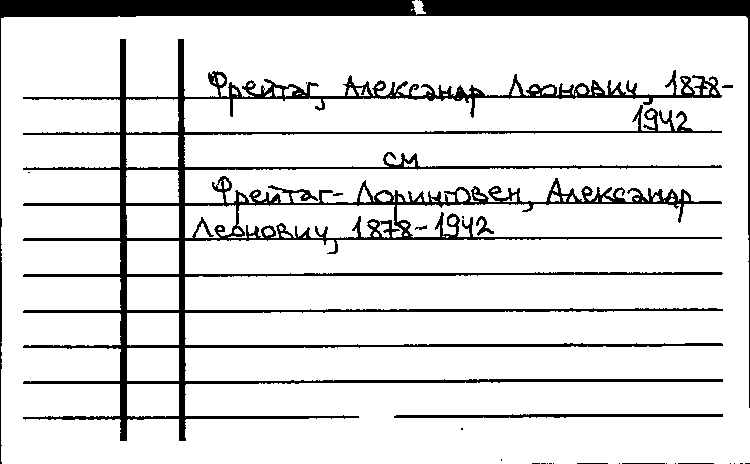 Фрейтаг, Александр Леонович, 1878-
1942
см
Фрейтаг-Лоринговен, Александр
Леонович, 1878-1942